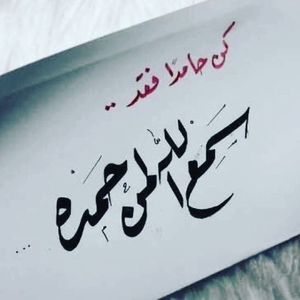 كن حامدًا فقد ..
سَمِعَ اللهُ لمن حَمِدَه ...